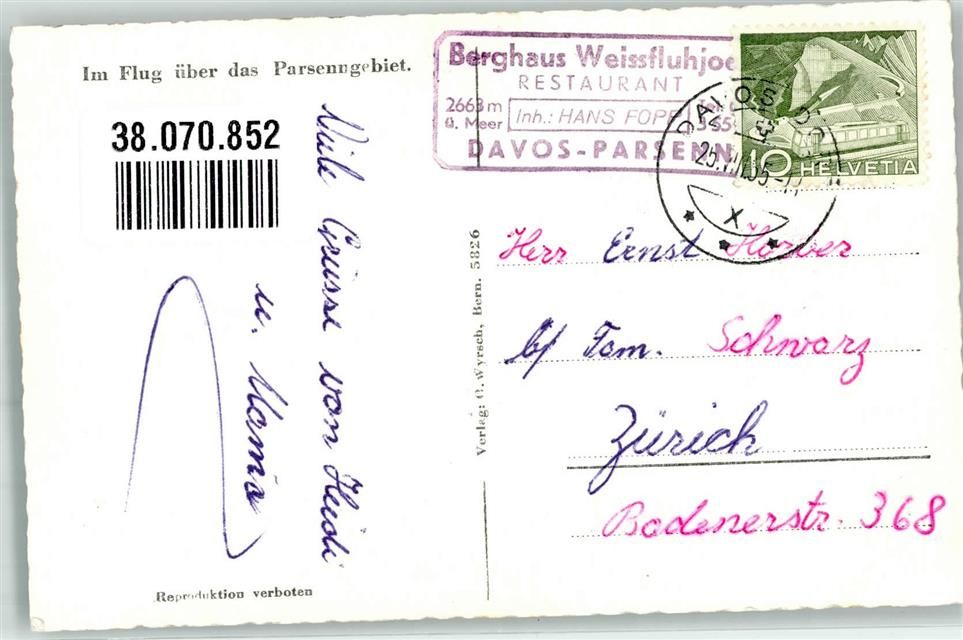 Im Flug über das Parsenngebiet.
38.070.852
Viele Grüsse von Heidi
u. Mama
Reproduktion verboten
Verlag: C. Wyrsch, Bern. 5826
Berghaus Weissfluhjoc
RESTAURANT
2663 m
ü. Meer
Inh.: HANS FOPP
DAVOS-PARSENN
10 HELVETIA
DAVOS
X
Herr Ernst
b/ Fam. Schwarz
Zürich
Badenerstr. 368